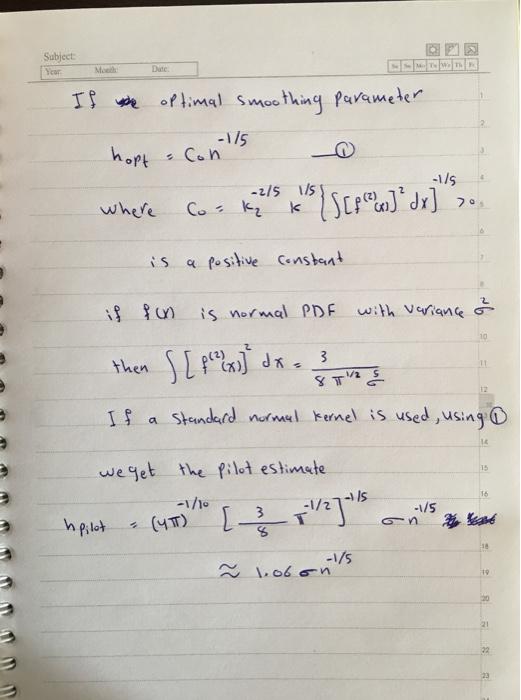 Subject:
Year: Month: Date:
Sa Su Mo Tu We Th Fr
If optimal smoothing parameter
h_opt = C₀ n^(-1/5) — ①
where C₀ = K₂^(-2/5) K^(1/5) {∫[f^(2)(x)]² dx}^(-1/5) > 0
is a positive constant
if f(x) is normal PDF with variance σ²
then ∫[f^(2)(x)]² dx = 3 / (8 π^(1/2) σ^5)
If a standard normal kernel is used, using ①
we get the pilot estimate
h_pilot = (4π)^(-1/10) [3/8 π^(-1/2)]^(-1/5) σ n^(-1/5)
≈ 1.06 σ n^(-1/5)
1
2
3
4
5
6
7
8
10
11
12
14
15
16
18
19
20
21
22
23
24